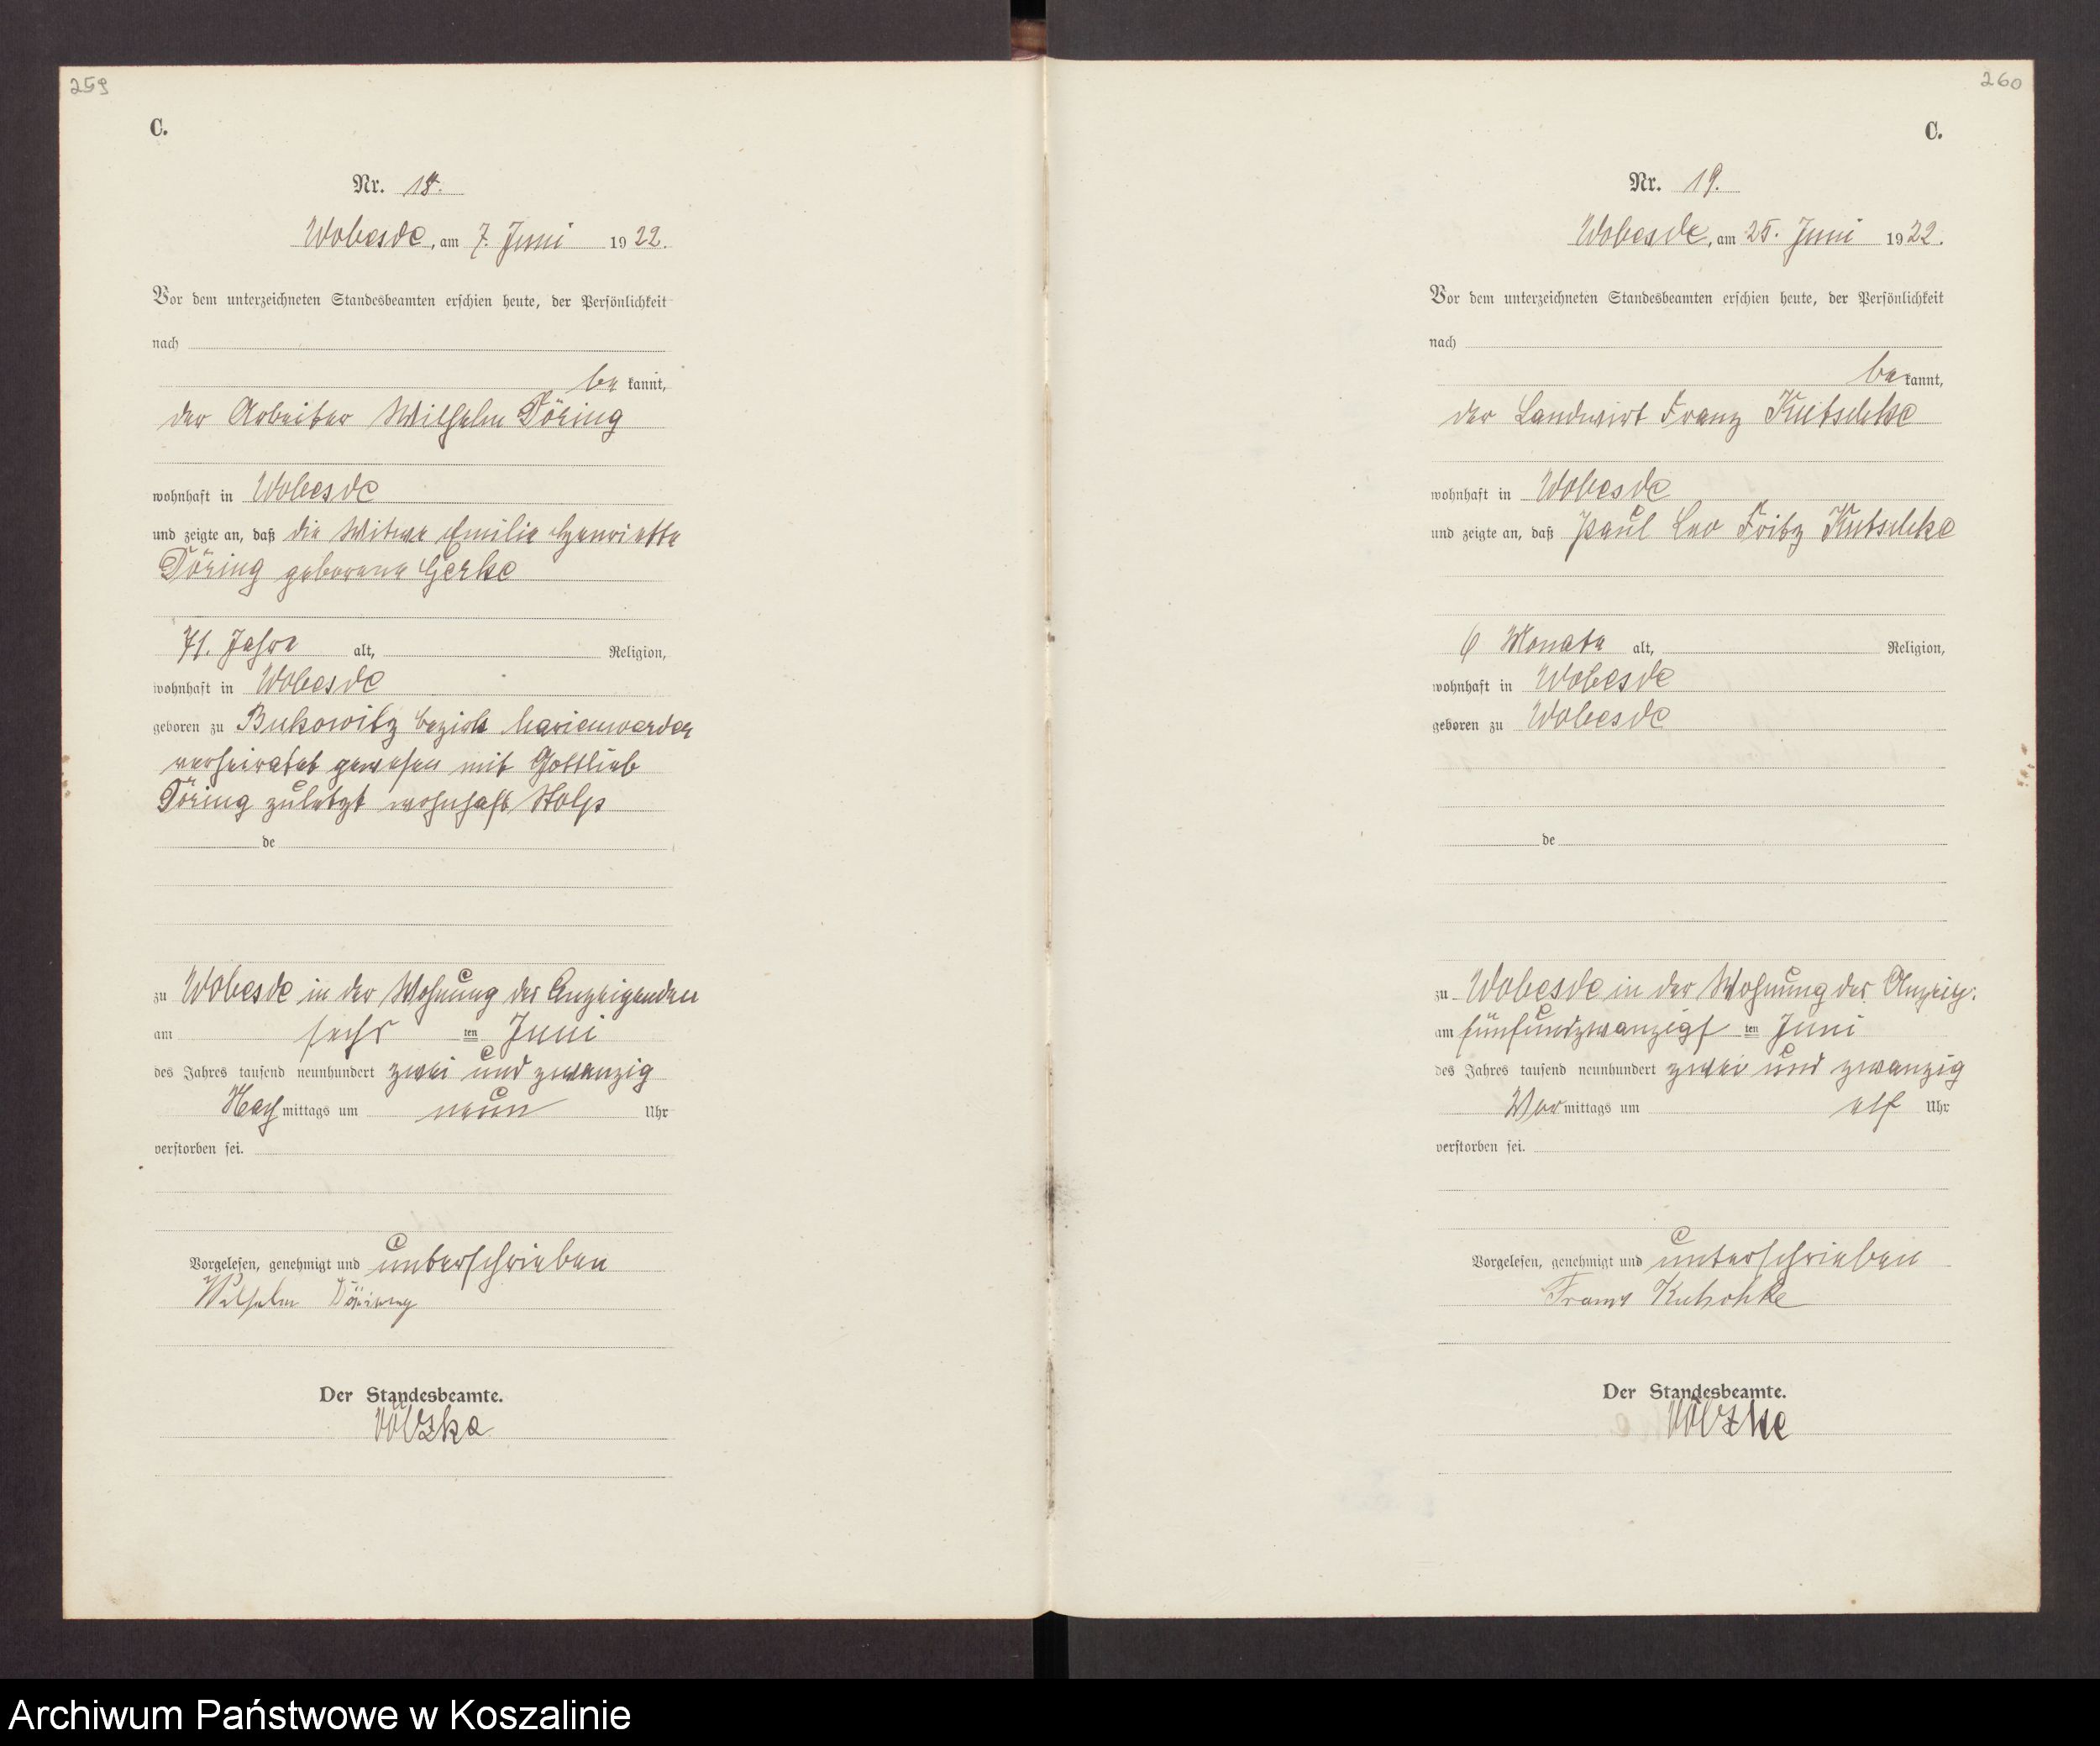 259
C.
Nr. 18.
Wobesde, am 7. Juni 1922.
Vor dem unterzeichneten Standesbeamten erschien heute, der Persönlichkeit
nach
be kannt,
der Arbeiter Wilhelm Döring
wohnhaft in Wobesde
und zeigte an, daß die Witwe Emilie Henriette
Döring geborene Gerke
71. Jahre alt, Religion,
wohnhaft in Wobesde
geboren zu Bukowitz Bezirk Marienwerder
verheiratet gewesen mit Gottlieb
Döring zuletzt wohnhaft Stolp
de
zu Wobesde in der Wohnung des Anzeigenden
am sechs ten Juni
des Jahres tausend neunhundert zwei und zwanzig
Nach mittags um neun Uhr
verstorben sei.
Vorgelesen, genehmigt und unterschrieben
Wilhelm Döring
Der Standesbeamte.
Völzke
260
C.
Nr. 19.
Wobesde, am 25. Juni 1922.
Vor dem unterzeichneten Standesbeamten erschien heute, der Persönlichkeit
nach
be kannt,
der Landwirt Franz Kutschke
wohnhaft in Wobesde
und zeigte an, daß Paul Leo Fritz Kutschke
6 Monate alt, Religion,
wohnhaft in Wobesde
geboren zu Wobesde
de
zu Wobesde in der Wohnung des Anzeig.
am fünfundzwanzigs ten Juni
des Jahres tausend neunhundert zwei und zwanzig
Vor mittags um elf Uhr
verstorben sei.
Vorgelesen, genehmigt und unterschrieben
Franz Kutschke
Der Standesbeamte.
Völzke
Archiwum Państwowe w Koszalinie